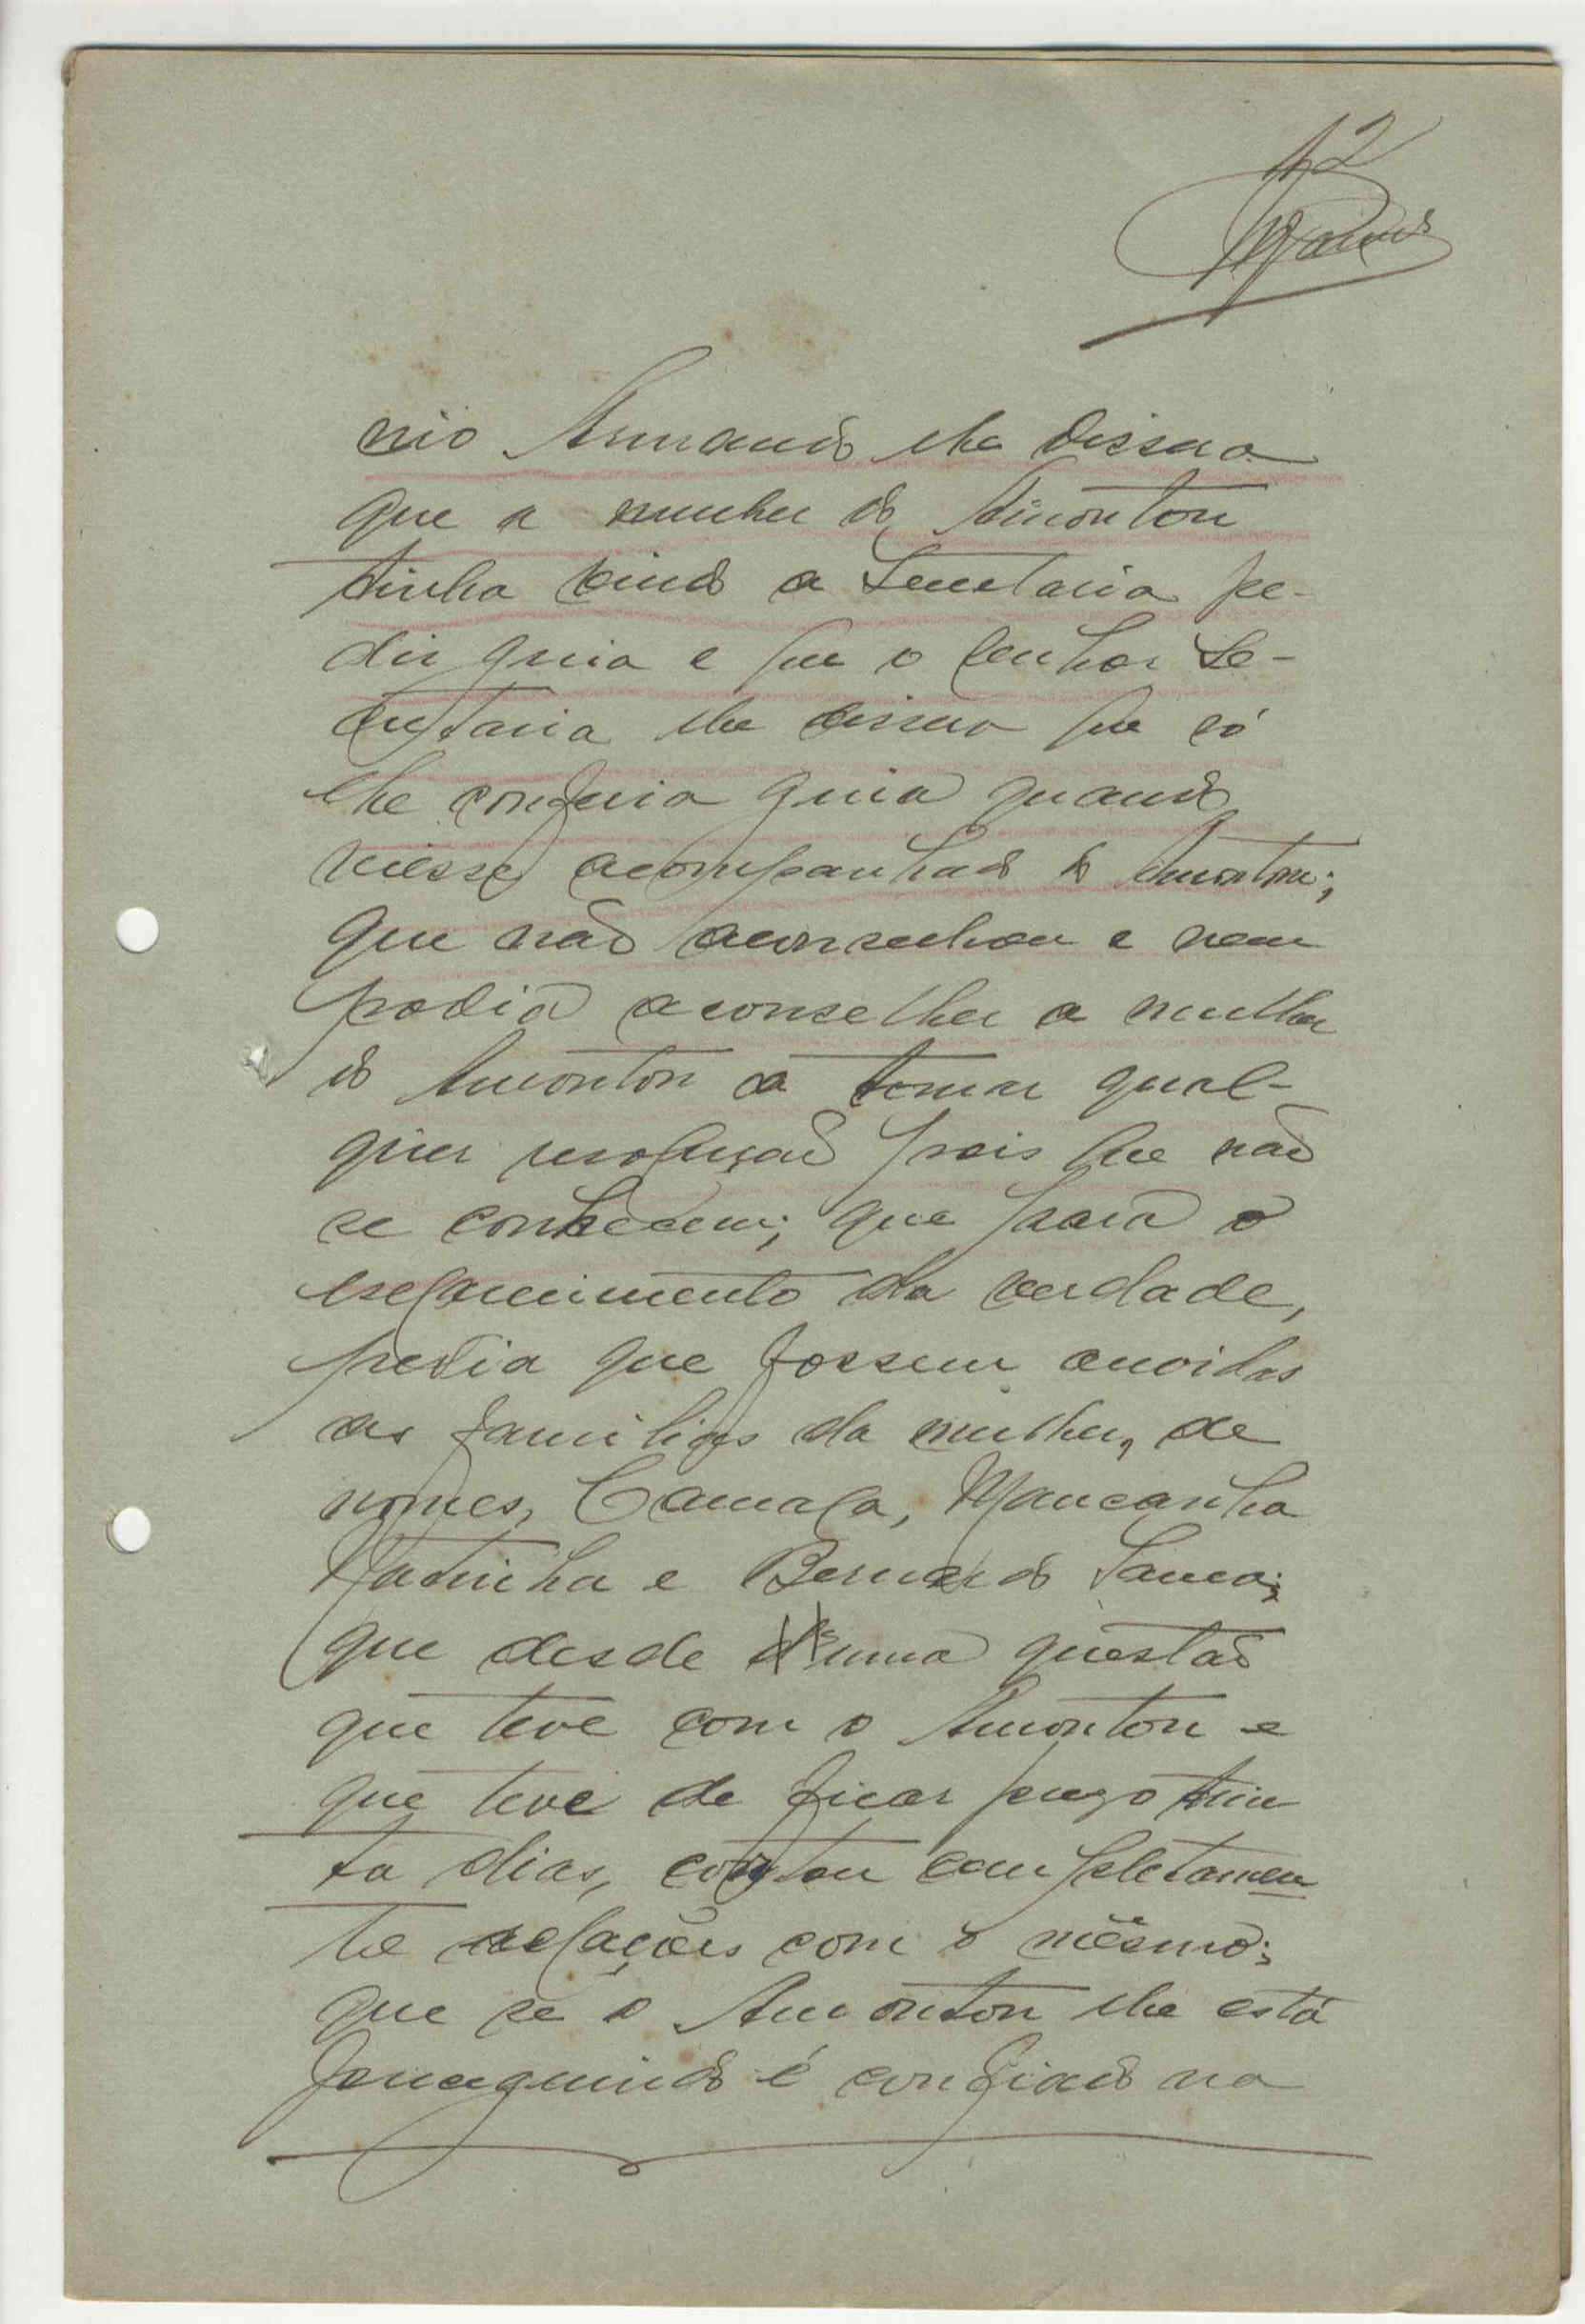 12
nio Armando lhe dissera
que a mulher do Amonton
tinha vindo a Secretaria pe-
dir guia e que o senhor Se-
cretario lhe dissera que só
lhe conferia guia quando
viesse acompanhado do Amonton;
que não aconselhou e nem
podia aconselhar a mulher
do Amonton a tomar qual-
quer resolução pois que não
se conhecem; que para o
esclarecimento da verdade,
pedia que fossem ouvidas
as familias da mulher, de
nomes, Camala, Mancanha
e Bernardo
que desde uma questão
que teve com o Amonton e
que teve de ficar preso trin
ta dias, cortou completamen
te relações com o mesmo;
que se o Amonton lhe está
perseguindo é confiado na